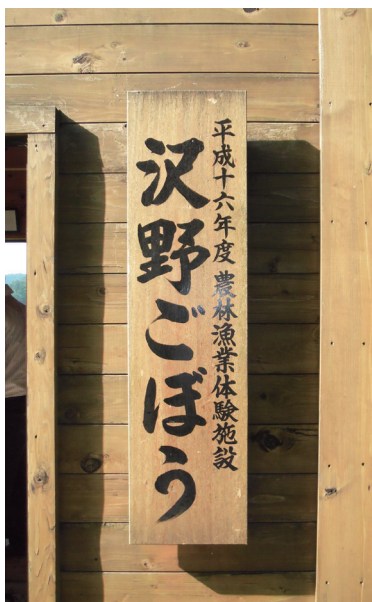 平成十六年度 農林漁業体験施設
沢野ごぼう